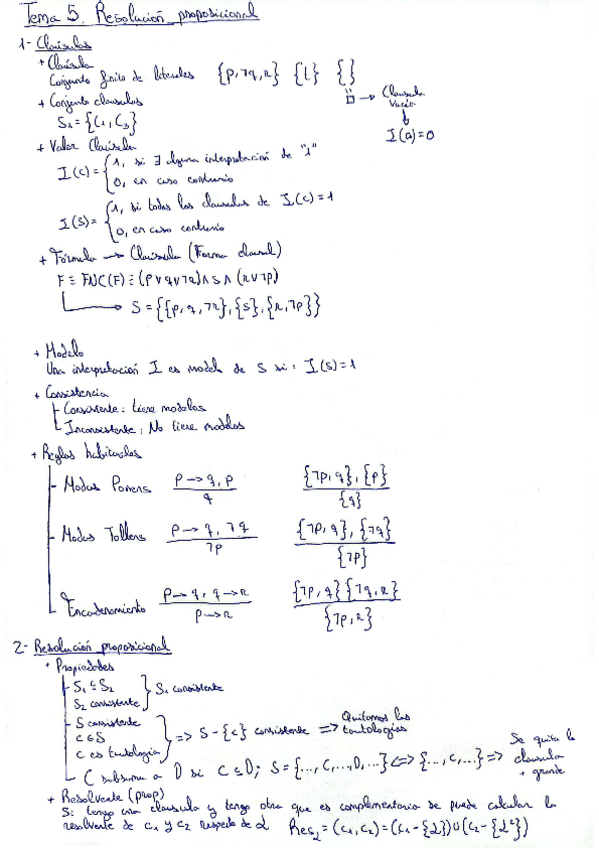 Tema 5. Resolución proposicional
1- Claúsulas
+ Claúsula
Conjunto finito de literales {p, ¬q, r} {L} {}
□ → Clausula vacía
↓
I(□) = 0
+ Conjunto clausulas
S₁ = {C₁, C₃}
+ Valor Claúsula
I(C) = { 1, si ∃ alguna interpretación de "1"
0, en caso contrario
I(S) = { 1, si todas las clausulas de I(C) = 1
0, en caso contrario
+ Fórmula → Claúsula (Forma clausal)
F ≡ FNC(F) ≡ (p ∨ q ∨ ¬q) ∧ s ∧ (r ∨ ¬p)
→ S = {{p, q, ¬r}, {s}, {r, ¬p}}
+ Modelo
Una interpretación I es modelo de S si: I(S) = 1
+ Consistencia
- Consistente: tiene modelos
- Inconsistente: No tiene modelos
+ Reglas habituales
- Modus Ponens p → q, p / q {¬p, q}, {p} / {q}
- Modus Tollens p → q, ¬q / ¬p {¬p, q}, {¬q} / {¬p}
- Encadenamiento p → q, q → r / p → r {¬p, q} {¬q, r} / {¬p, r}
2- Resolución proposicional
+ Propiedades
- S₁ ⊆ S₂
S₂ consistente } S₁ consistente
- S consistente
C ∈ S
C es tautología } ⇒ S - {c} consistente ⇒ Quitamos las tautologías
- C subsume a D si C ⊆ D; S = {..., C, ..., D, ...} ⇔ {..., C, ...} ⇒ Se quita la clausula + grande
+ Resolvente (prop)
Si tengo una clausula y tengo otra que es complementaria se puede calcular la
resolvente de C₁ y C₂ respecto de L Res_L = (C₁, C₂) = (C₁ - {L}) ∪ (C₂ - {Lᶜ})